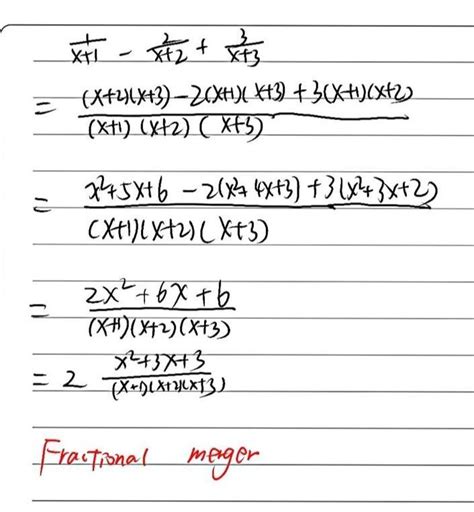 1/(x+1) - 2/(x+2) + 3/(x+3)
= ((x+2)(x+3) - 2(x+1)(x+3) + 3(x+1)(x+2))/((x+1)(x+2)(x+3))
= (x²+5x+6 - 2(x²+4x+3) + 3(x²+3x+2))/((x+1)(x+2)(x+3))
= (2x²+6x+6)/((x+1)(x+2)(x+3))
= 2 (x²+3x+3)/((x+1)(x+2)(x+3))
Fractional merger